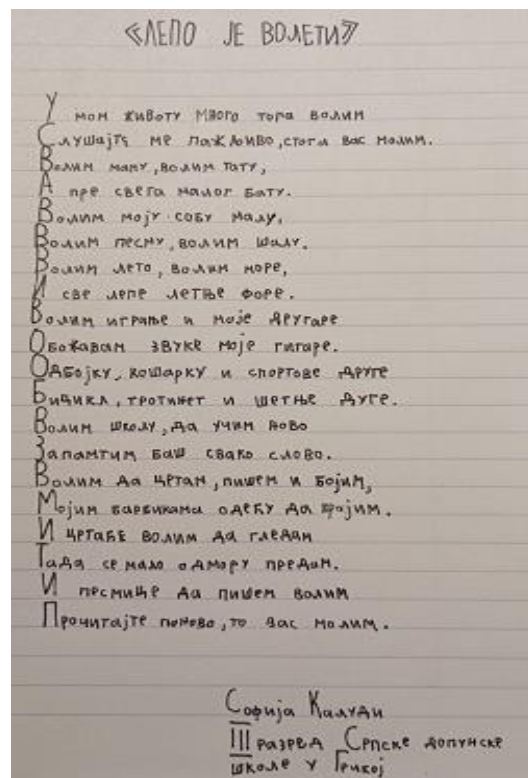 «ЛЕПО ЈЕ ВОЛЕТИ»
У мом животу много тога волим
Слушајте ме пажљиво, стога вас молим.
Волим маму, волим тату,
А пре свега малог бату.
Волим моју собу малу,
Волим песму, волим шалу.
Волим лето, волим море,
И све лепе летње форе.
Волим играње и моје другаре
Обожавам звуке моје гитаре.
Одбојку, кошарку и спортове друге
Бицикл, тротинет и шетње дуге.
Волим школу, да учим ново
Запамтим баш свако слово.
Волим да цртам, пишем и бојим,
Мојим барбикама одећу да кројим.
И цртаће волим да гледам
Тада се мало одмору предам.
И песмице да пишем волим
Прочитајте поново, то вас молим.
Софија Калуди
III разред Српске допунске
школе у Грчкој